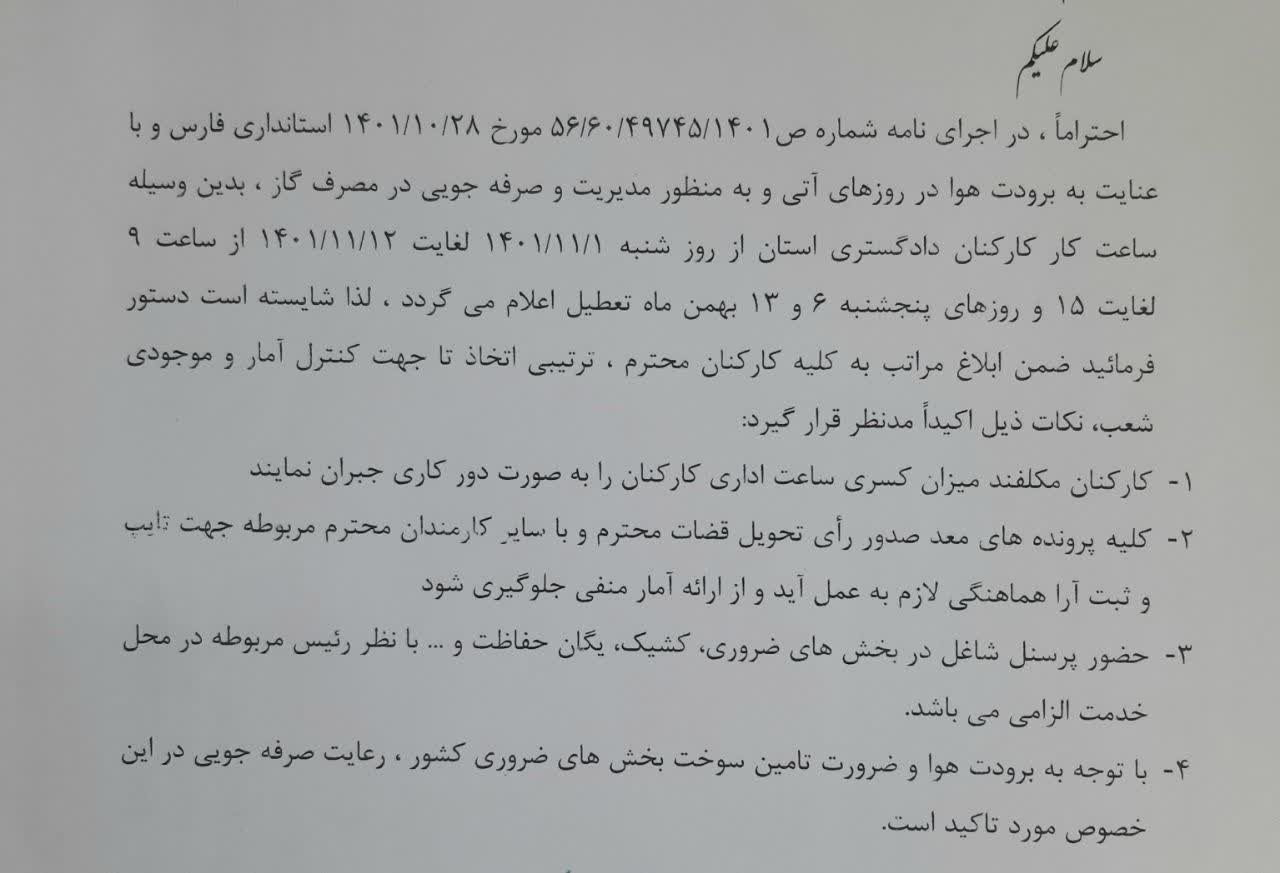 سلام علیکم
احتراماً ، در اجرای نامه شماره ص۵۶/۶۰/۴۹۷۴۵/۱۴۰۱ مورخ ۱۴۰۱/۱۰/۲۸ استانداری فارس و با
عنایت به برودت هوا در روزهای آتی و به منظور مدیریت و صرفه جویی در مصرف گاز ، بدین وسیله
ساعت کار کارکنان دادگستری استان از روز شنبه ۱۴۰۱/۱۱/۱ لغایت ۱۴۰۱/۱۱/۱۲ از ساعت ۹
لغایت ۱۵ و روزهای پنجشنبه ۶ و ۱۳ بهمن ماه تعطیل اعلام می گردد ، لذا شایسته است دستور
فرمائید ضمن ابلاغ مراتب به کلیه کارکنان محترم ، ترتیبی اتخاذ تا جهت کنترل آمار و موجودی
شعب، نکات ذیل اکیداً مدنظر قرار گیرد:
۱- کارکنان مکلفند میزان کسری ساعت اداری کارکنان را به صورت دور کاری جبران نمایند
۲- کلیه پرونده های معد صدور رأی تحویل قضات محترم و با سایر کارمندان محترم مربوطه جهت تایپ
و ثبت آرا هماهنگی لازم به عمل آید و از ارائه آمار منفی جلوگیری شود
۳- حضور پرسنل شاغل در بخش های ضروری، کشیک، یگان حفاظت و ... با نظر رئیس مربوطه در محل
خدمت الزامی می باشد.
۴- با توجه به برودت هوا و ضرورت تامین سوخت بخش های ضروری کشور ، رعایت صرفه جویی در این
خصوص مورد تاکید است.